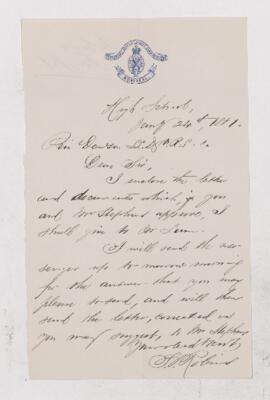 MONTREAL
High School,
Jany 24th, 1881.
Dawson
Dear Sir,
I enclose the letter
and documents which, if you
and Mr Stephens approve, I
shall give to Mr
I will send the mes-
senger up to-morrow morning
for the answer that you may
please to send, and will then
send the letter, corrected as
you may suggest, to Mr Stephens
Yours obediently
Robins